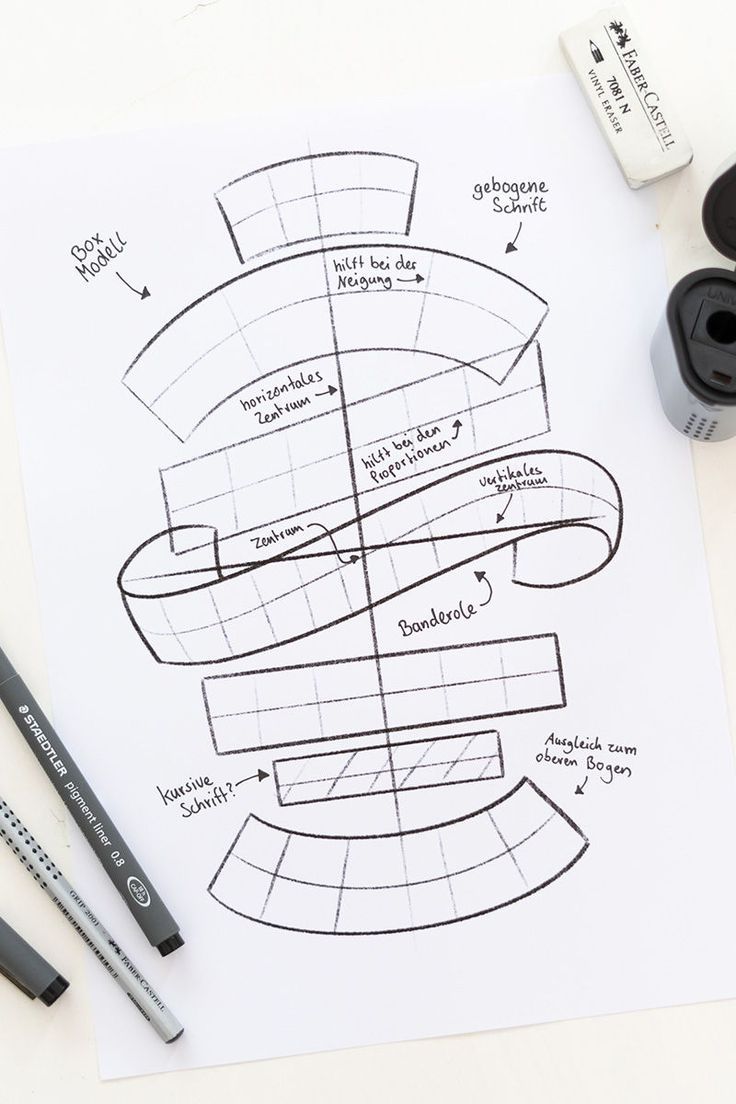 FABER-CASTELL
7081 N
VINYL ERASER
gebogene
Schrift
Box
Modell
hilft bei der
Neigung
UNI
horizontales
Zentrum
hilft bei den
Proportionen
vertikales
zentrum
Zentrum
Banderole
Ausgleich zum
oberen Bogen
kursive
Schrift?
STAEDTLER
pigment liner 0.8
CAP OFF
GRIP 2001
FABER-CASTELL